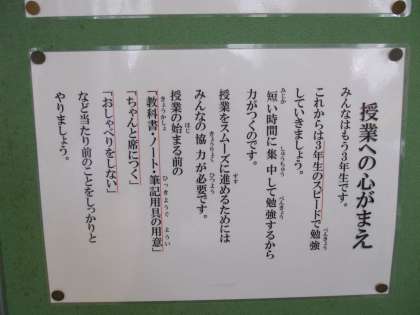 授業への心がまえ
みんなはもう3年生です。
これからは3年生のスピードで勉強
していきましょう。
短い時間に集中して勉強するから
力がつくのです。
授業をスムーズに進めるためには
みんなの協力が必要です。
授業の始まる前の
「教科書・ノート・筆記用具の用意」
「ちゃんと席につく」
「おしゃべりをしない」
など当たり前のことをしっかりと
やりましょう。